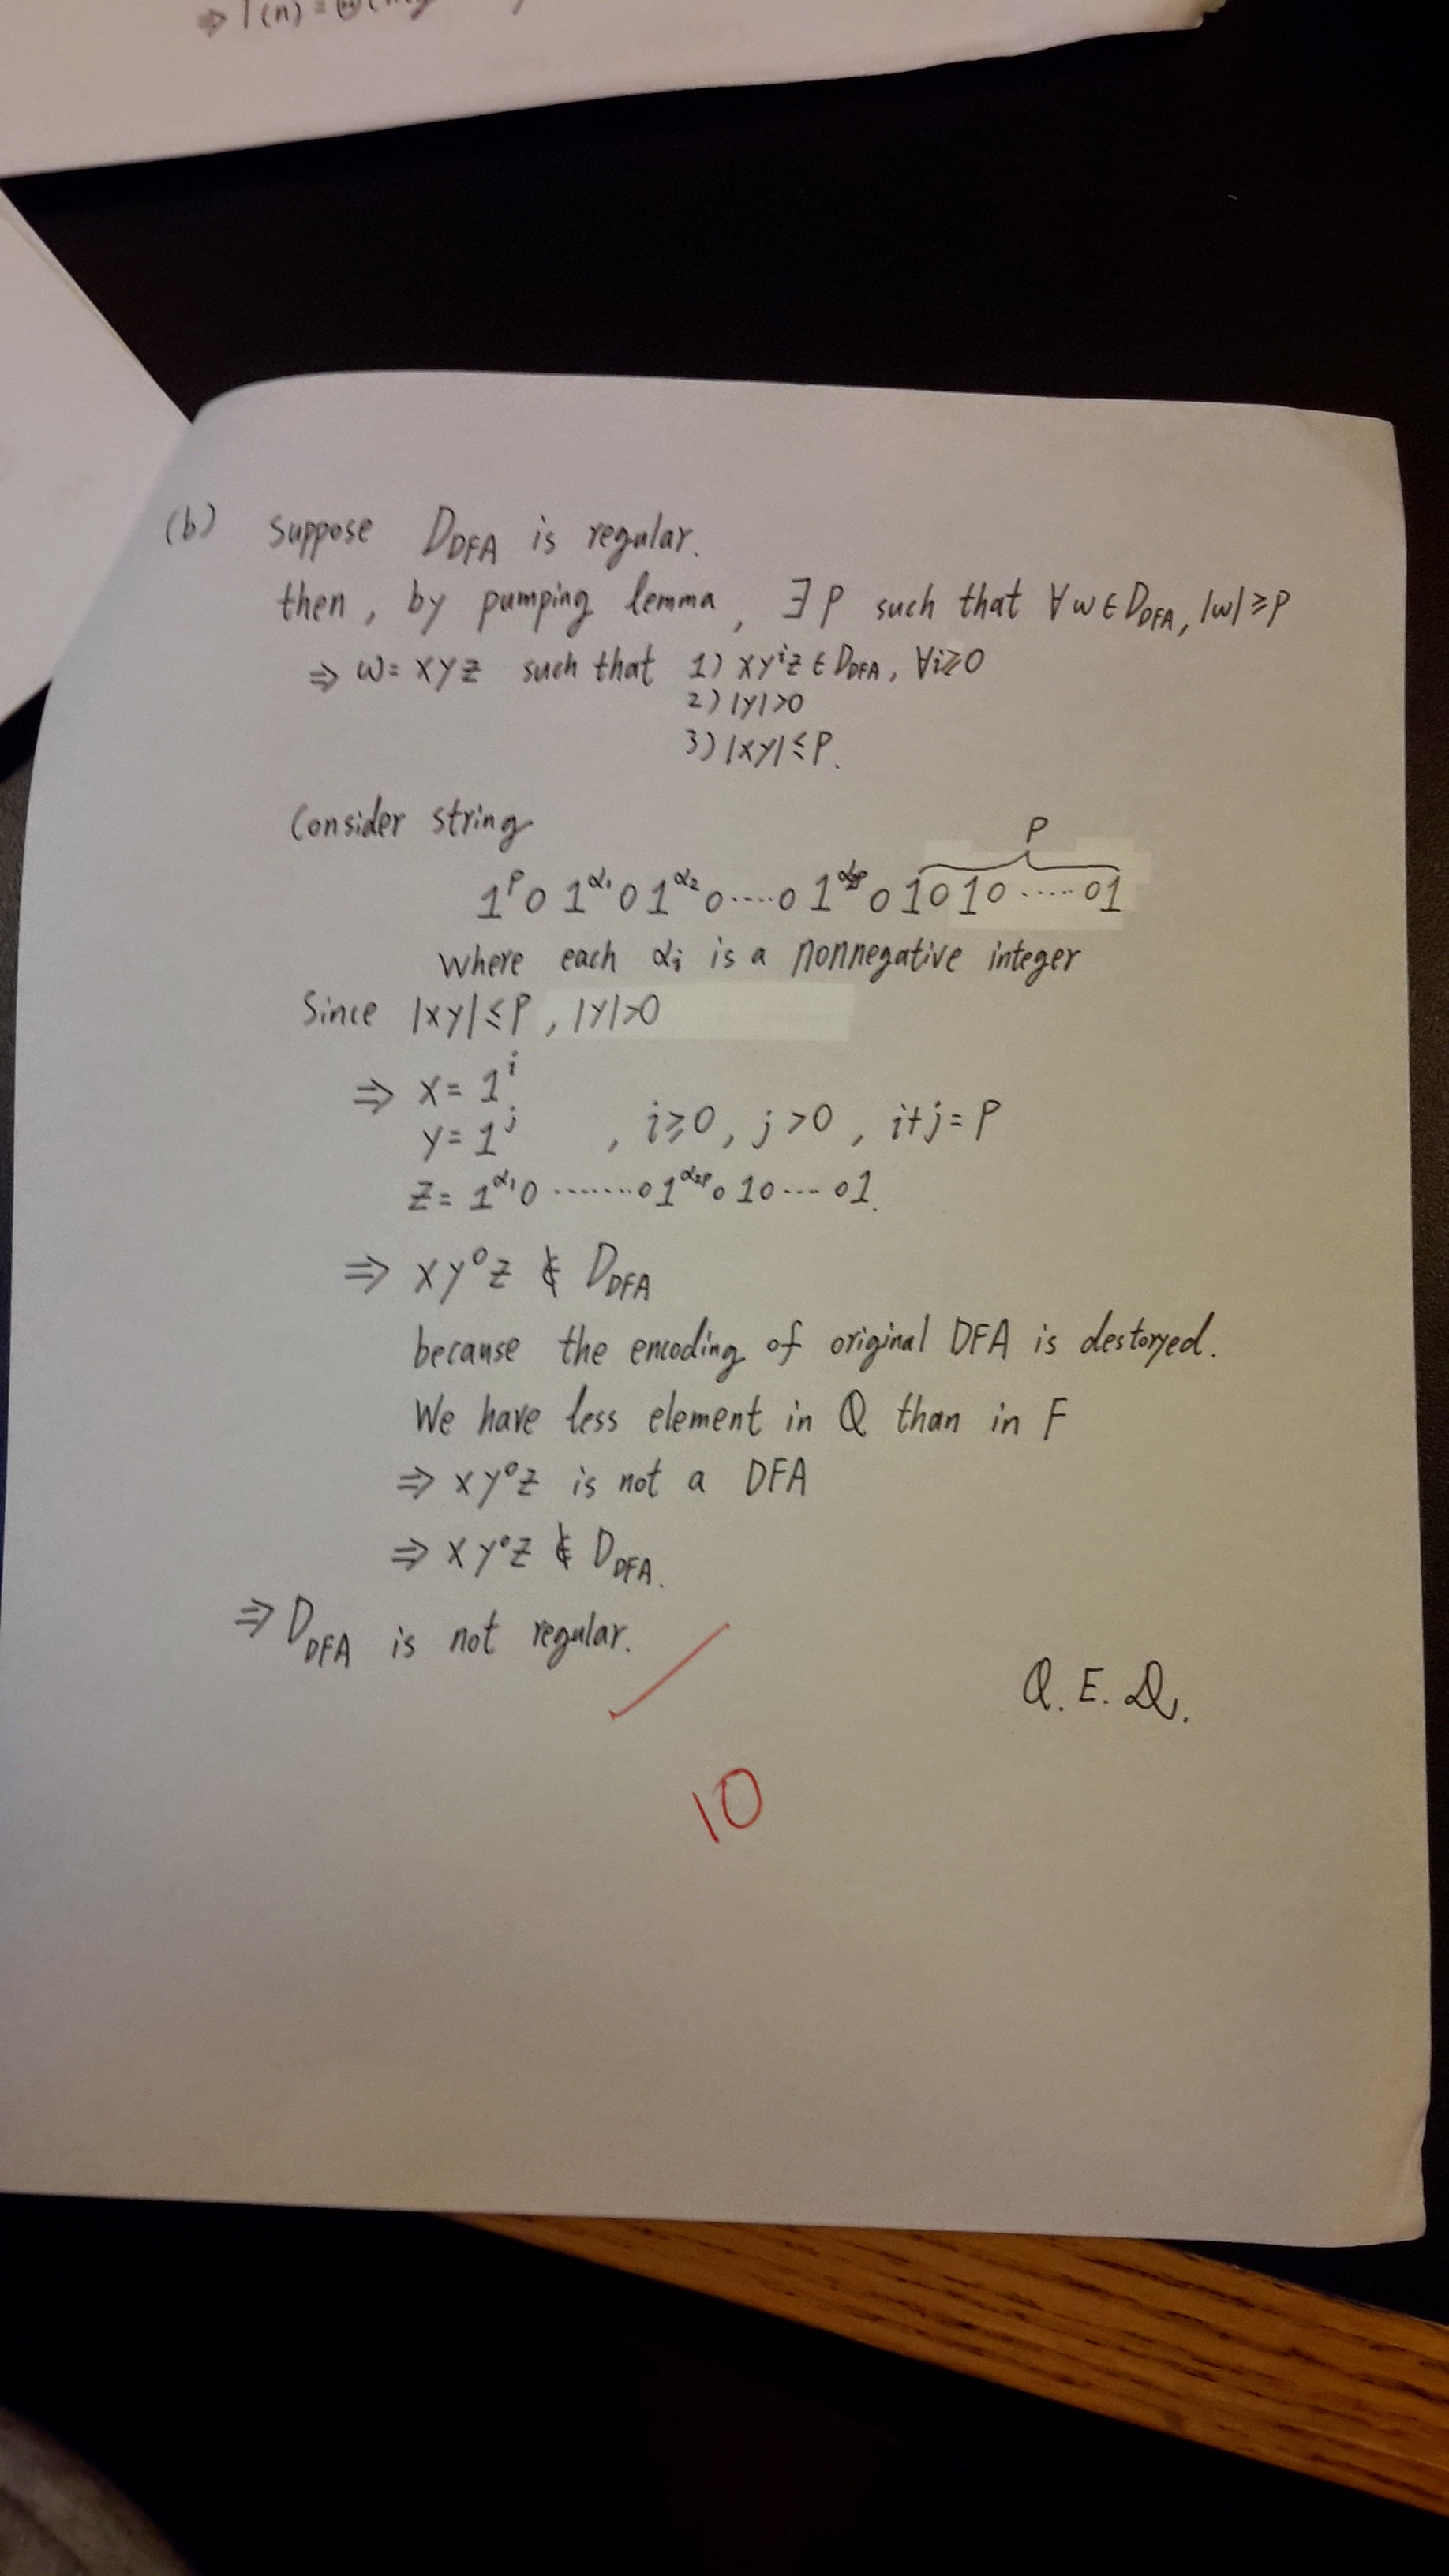 ⇒ T(n) = Θ(n
(b) suppose D_DFA is regular.
then, by pumping lemma, ∃ P such that ∀ w ∈ D_DFA, |w| ≥ P
⇒ w = xyz such that 1) xy^i z ∈ D_DFA, ∀i≥0
2) |y|>0
3) |xy| ≤ P.
Consider string
P
1^P 0 1^α₁ 0 1^α₂ 0 ····0 1^α₂ₚ 0 10 10 ····· 01
where each αi is a nonnegative integer
Since |xy| ≤ P, |y|>0
⇒ x = 1^i
y = 1^j , i≥0, j>0, i+j = P
z = 1^α₁ 0 ·······0 1^α₂ₚ 0 10···· 01.
⇒ xy⁰z ∉ D_DFA
because the encoding of original DFA is destoryed.
We have less element in Q than in F
⇒ xy⁰z is not a DFA
⇒ xy⁰z ∉ D_DFA.
⇒ D_DFA is not regular.
Q.E.D.
10